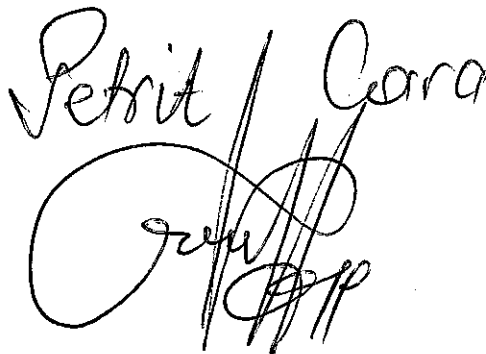 Petrit Cara